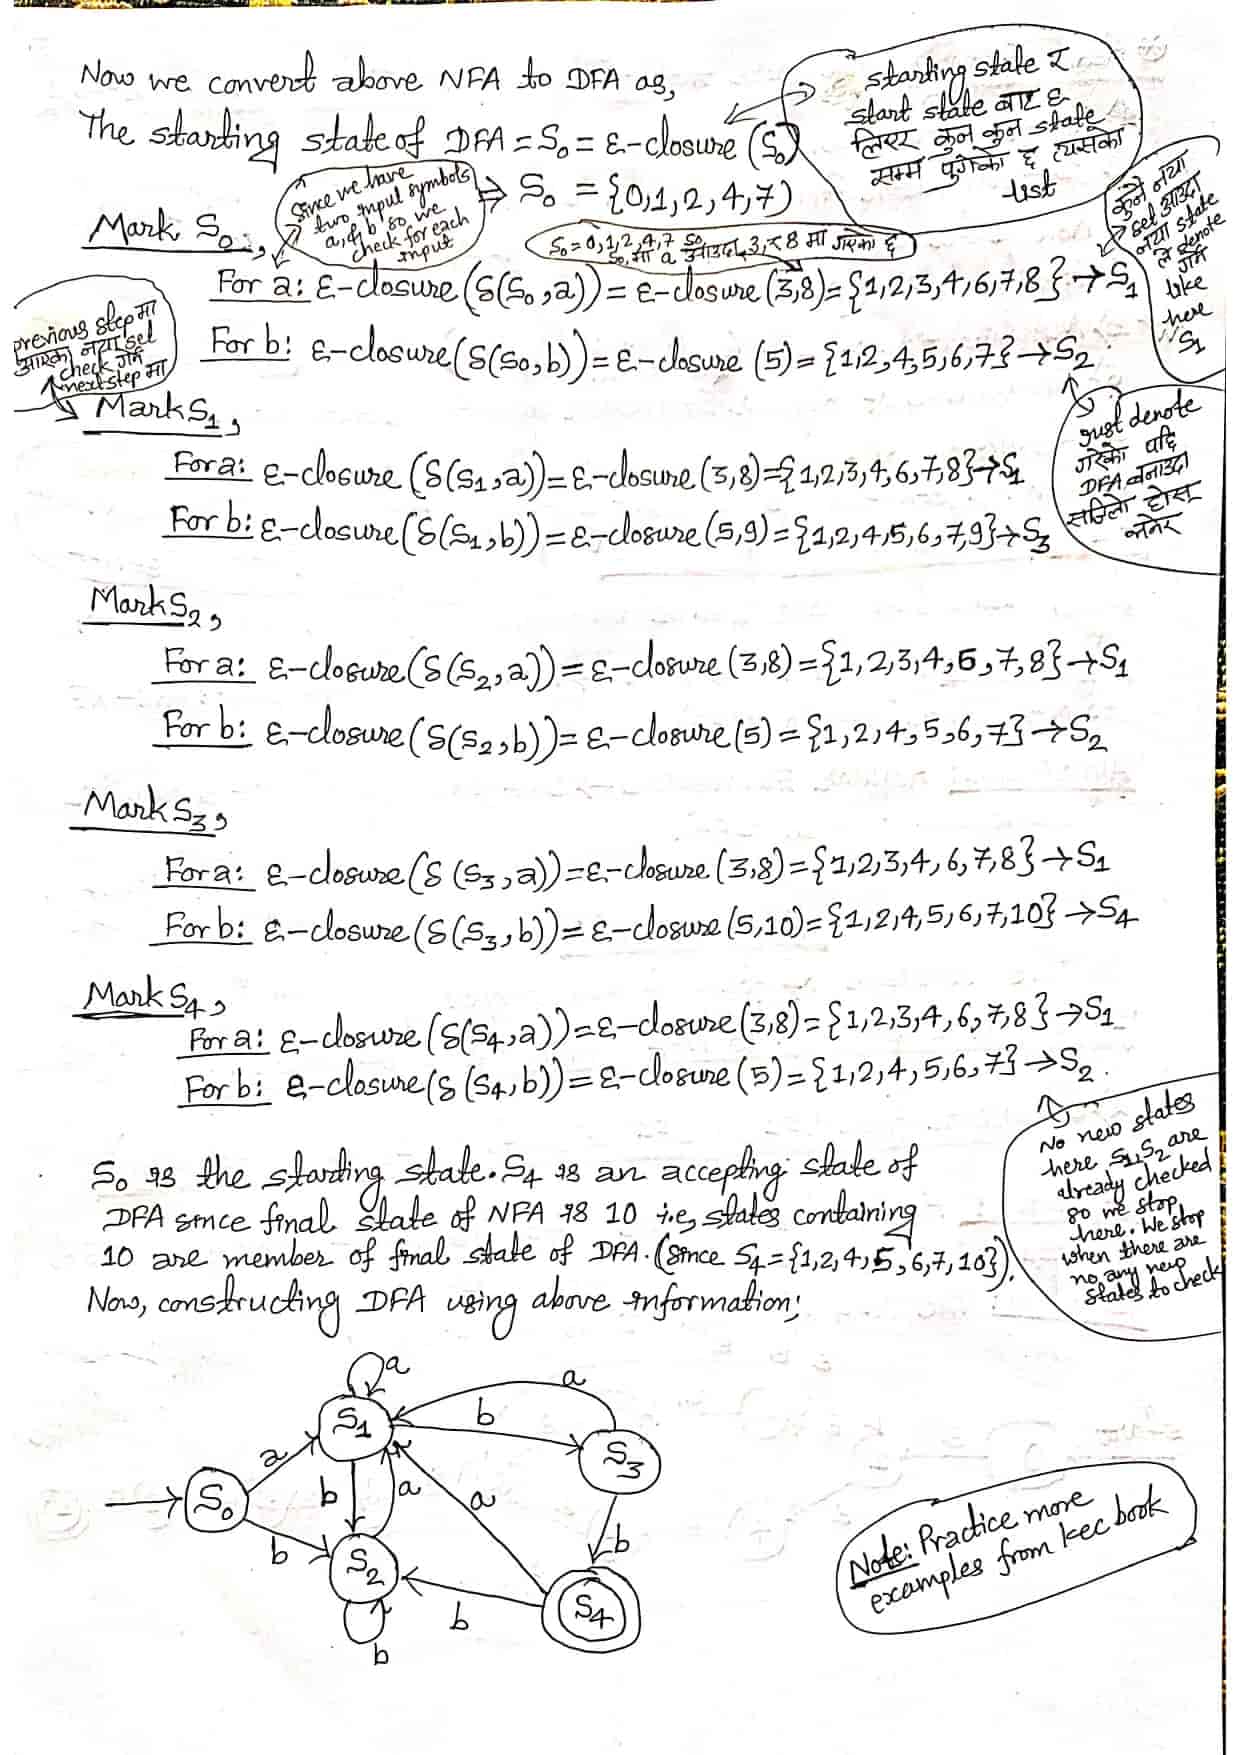 Now we convert above NFA to DFA as,
The starting state of DFA = S₀ = ε-closure (S₀)
⇒ S₀ = {0,1,2,4,7)
starting state र
start state बाट ε
लिएर कुन कुन state
सम्म पुगेको छ त्यसको
list
Since we have
two input symbols
a, & b so, we
check for each
input
Mark S₀,
S₀ = 0,1,2,4,7 so
S₀ मा a आउदा 3, र 8 मा गएको छ
कुनै नया
set आउदा
नया state
ले denote
गर्ने
like
here
S₁
For a: ε-closure (δ(S₀,a)) = ε-closure (3,8) = {1,2,3,4,6,7,8} → S₁
previous step मा
आएको नया set
check गर्ने
next step मा
For b: ε-closure (δ(S₀,b)) = ε-closure (5) = {1,2,4,5,6,7} → S₂
just denote
गरेको पछि
DFA बनाउदा
सजिलो होस्
भनेर
Mark S₁,
For a: ε-closure (δ(S₁,a)) = ε-closure (3,8) = {1,2,3,4,6,7,8} → S₁
For b: ε-closure (δ(S₁,b)) = ε-closure (5,9) = {1,2,4,5,6,7,9} → S₃
Mark S₂,
For a: ε-closure (δ(S₂,a)) = ε-closure (3,8) = {1,2,3,4,6,7,8} → S₁
For b: ε-closure (δ(S₂,b)) = ε-closure (5) = {1,2,4,5,6,7} → S₂
Mark S₃,
For a: ε-closure (δ (S₃,a)) = ε-closure (3,8) = {1,2,3,4,6,7,8} → S₁
For b: ε-closure (δ(S₃,b)) = ε-closure (5,10) = {1,2,4,5,6,7,10} → S₄
Mark S₄,
For a: ε-closure (δ(S₄,a)) = ε-closure (3,8) = {1,2,3,4,6,7,8} → S₁
For b: ε-closure (δ (S₄,b)) = ε-closure (5) = {1,2,4,5,6,7} → S₂.
No new states
here S₁,S₂ are
already checked
so we stop
here. We stop
when there are
no any new
states to check
S₀ is the starting state. S₄ is an accepting state of
DFA since final state of NFA is 10 i.e, states containing
10 are member of final state of DFA. (since S₄ = {1,2,4,5,6,7,10}).
Now, constructing DFA using above information;
a
a
b
S₁
S₃
a
S₀
b
a
a
b
b
S₂
S₄
b
b
Note: Practice more
examples from kec book